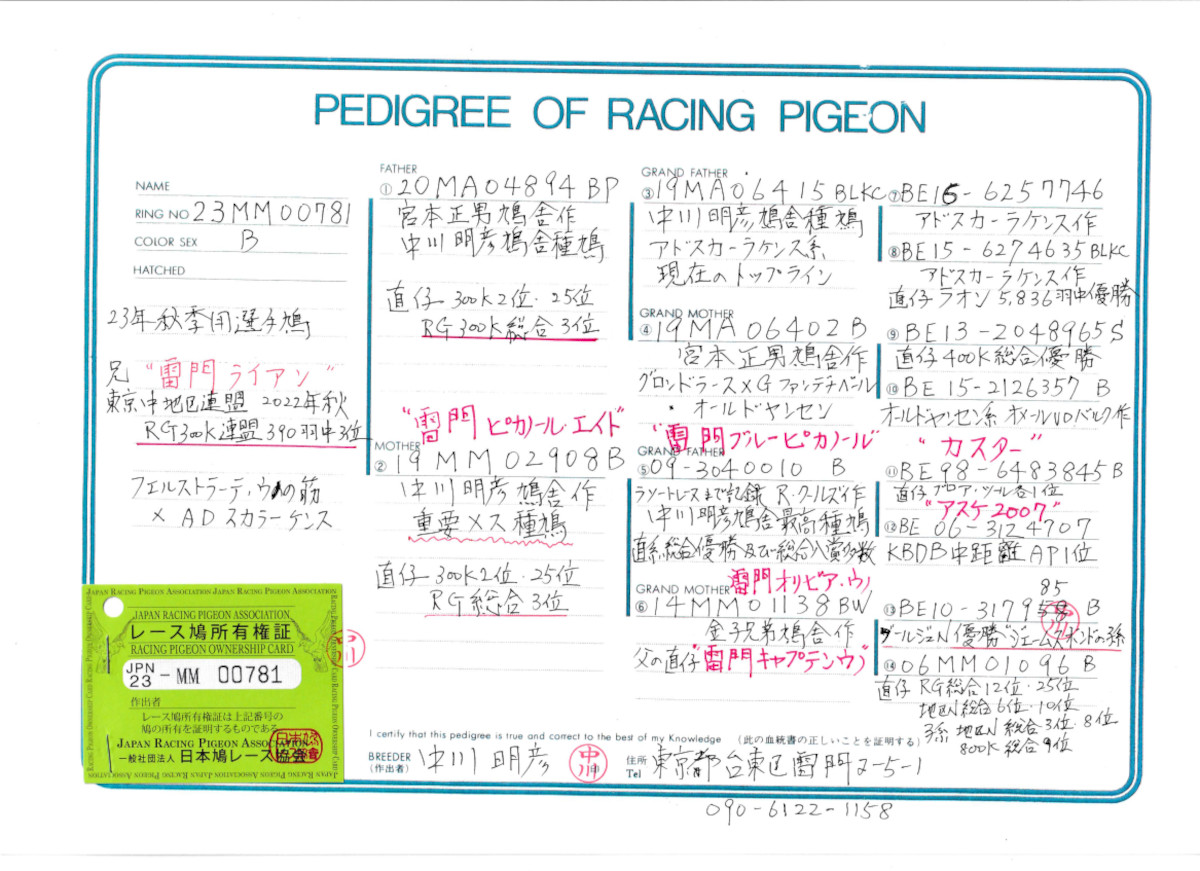 PEDIGREE OF RACING PIGEON
NAME
RING NO 23MM00781
COLOR SEX B
HATCHED
23年秋季用選手鳩
兄 "雷門 ライアン"
東京中地区連盟 2022年秋
RG300K連盟390羽中3位
フェルストラーテ・ウの筋
× ADスカラーゲンス
JAPAN RACING PIGEON ASSOCIATION
レース鳩所有権証
RACING PIGEON OWNERSHIP CARD
JPN
23 - MM 00781
作出者
レース鳩所有権証は上記番号の
鳩の所有を証明するものである
JAPAN RACING PIGEON ASSOCIATION
一般社団法人 日本鳩レース協会
FATHER
① 20MA04894 BP
宮本正男鳩舎作
中川明彦鳩舎種鳩
直仔 300K2位・25位
RG300K総合3位
"雷門 ピカノール・エイド"
MOTHER
② 19MM02908B
中川明彦鳩舎作
重要×ス種鳩
直仔 300K2位・25位
RG総合3位
GRAND FATHER
③ 19MA06415 BLKC
中川明彦鳩舎種鳩
アドスカーラケンス系
現在のトップライン
GRAND MOTHER
④ 19MA06402B
宮本正男鳩舎作
グロンドラース×Gファンテナパール
・オールドヤンセン
"雷門ブルーピカノール"
GRAND FATHER
⑤ 09-3040010 B
ラソートレースまで記録 R.クールズ作
中川明彦鳩舎最高種鳩
直系総合優勝及び総合入賞多数
雷門オリビア・ウノ
GRAND MOTHER
⑥ 14MM01138BW
金子兄弟鳩舎作
父の直仔"雷門キャプテンウノ"
⑦ BE15-6257746
アドスカーラケンス作
⑧ BE15-6274635BLKC
アドスカーラケンス作
直仔ラオン5,836羽中優勝
⑨ BE13-2048965S
直仔400K総合優勝
⑩ BE15-2126357 B
オールドヤンセン系 オメールVDバルク作
"カスター"
⑪ BE98-6483845B
直仔 プロア・ツール 1位
"アスケ2007"
⑫ BE 06-3124707
KBDB中距離AP1位
85
⑬ BE10-31795 B
ダールジュN優勝"ジェームスボンドの孫
⑭ 06MM01096B
直仔 RG総合12位・25位
地区N総合6位・10位
孫 地区N総合3位・8位
800K総合9位
I certify that this pedigree is true and correct to the best of my Knowledge (此の血統書の正しいことを証明する)
BREEDER
(作出者)
中川明彦
中川
住所
Tel
東京都台東区雷門2-5-1
090-6122-1158